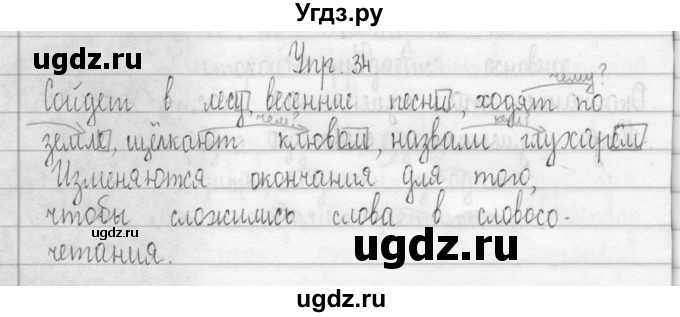 Угдз.ру
ugdz.ru ugdz.ru
Упр. 34
чему?
Сойдет в лесу, весенние песни, ходят по
чем? как?
земле, щёлкают клювом, назвали глухарём
Изменяются окончания для того,
чтобы сложились слова в словосо-
четания.
ugdz.ru ugdz.ru
ugdz.ru